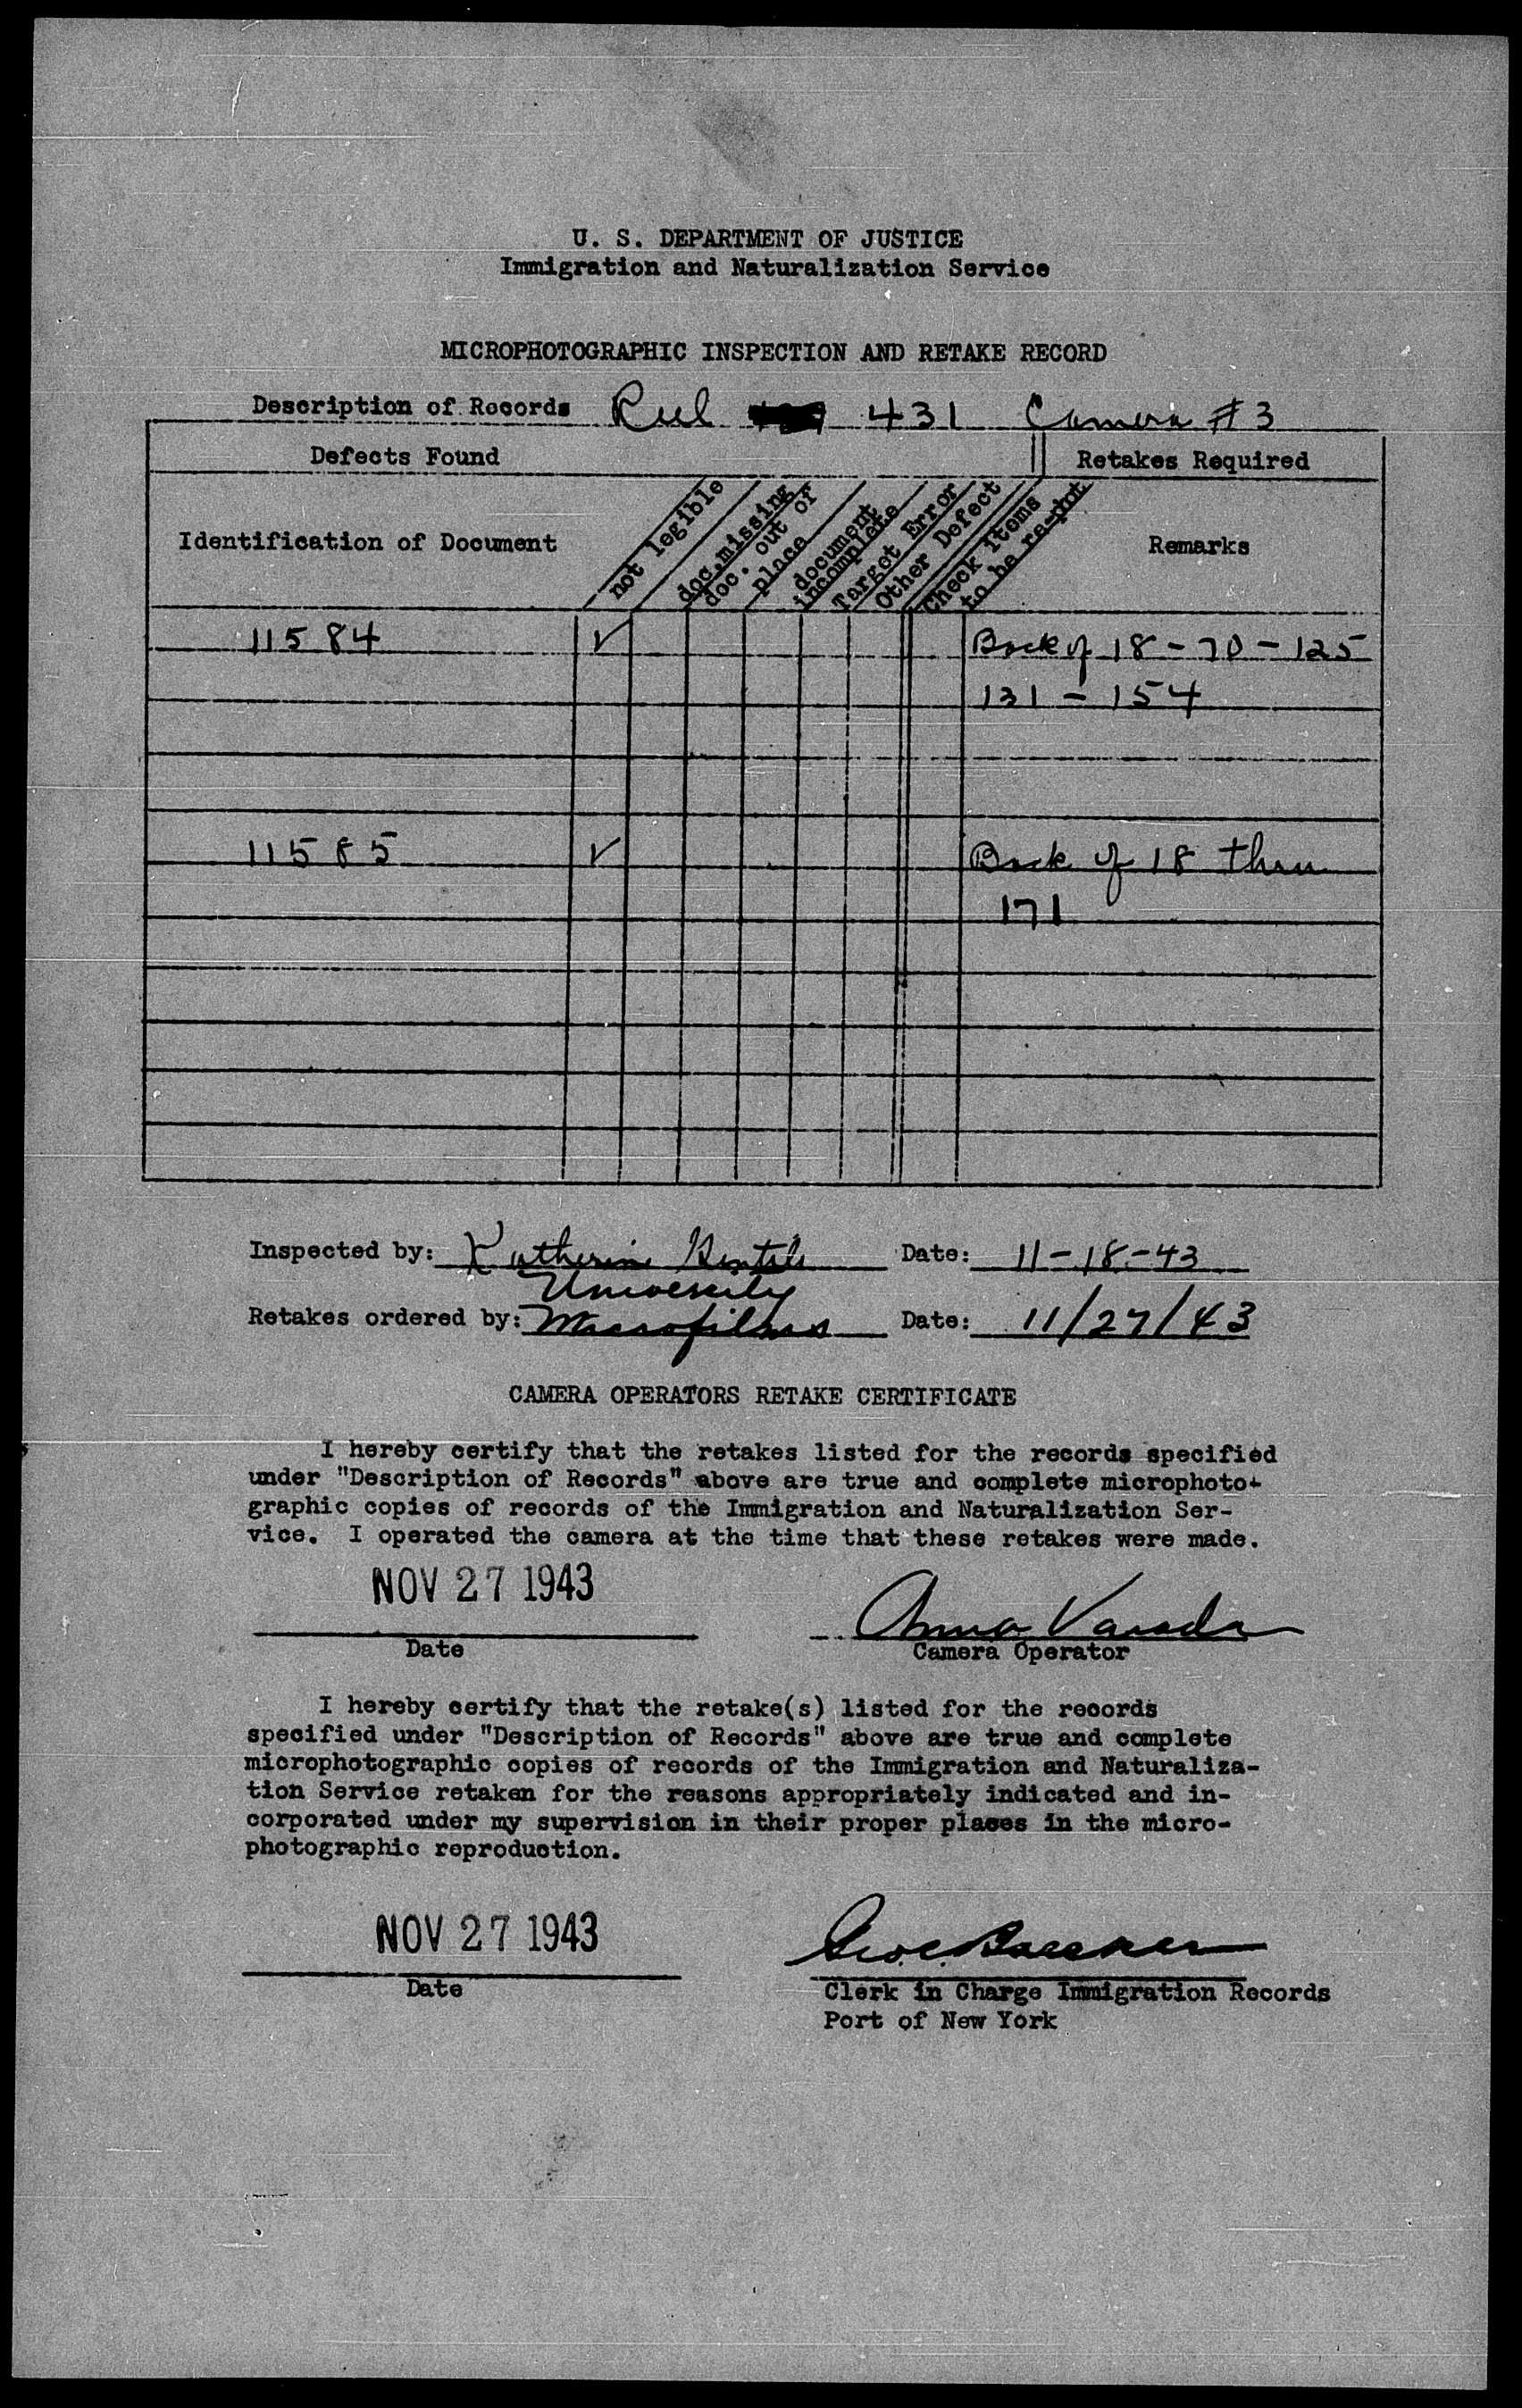 U. S. DEPARTMENT OF JUSTICE
Immigration and Naturalization Service
MICROPHOTOGRAPHIC INSPECTION AND RETAKE RECORD
Description of Records Reel 431 Camera #3
Defects Found
Retakes Required
Identification of Document
not legible
doc. missing
doc. out of
place
document
incomplete
Target Error
Other Defect
Check items
to be re-phot
Remarks
11584 ✓ Back of 18 - 70 - 125
131 - 154
11585 ✓ Back of 18 thru
171
Inspected by: Katherine Date: 11-18-43
University
Retakes ordered by: Microfilms Date: 11/27/43
CAMERA OPERATORS RETAKE CERTIFICATE
I hereby certify that the retakes listed for the records specified
under "Description of Records" above are true and complete microphoto-
graphic copies of records of the Immigration and Naturalization Ser-
vice. I operated the camera at the time that these retakes were made.
NOV 27 1943
Anna
Date
Camera Operator
I hereby certify that the retake(s) listed for the records
specified under "Description of Records" above are true and complete
microphotographic copies of records of the Immigration and Naturaliza-
tion Service retaken for the reasons appropriately indicated and in-
corporated under my supervision in their proper places in the micro-
photographic reproduction.
NOV 27 1943
Date
Clerk in Charge Immigration Records
Port of New York